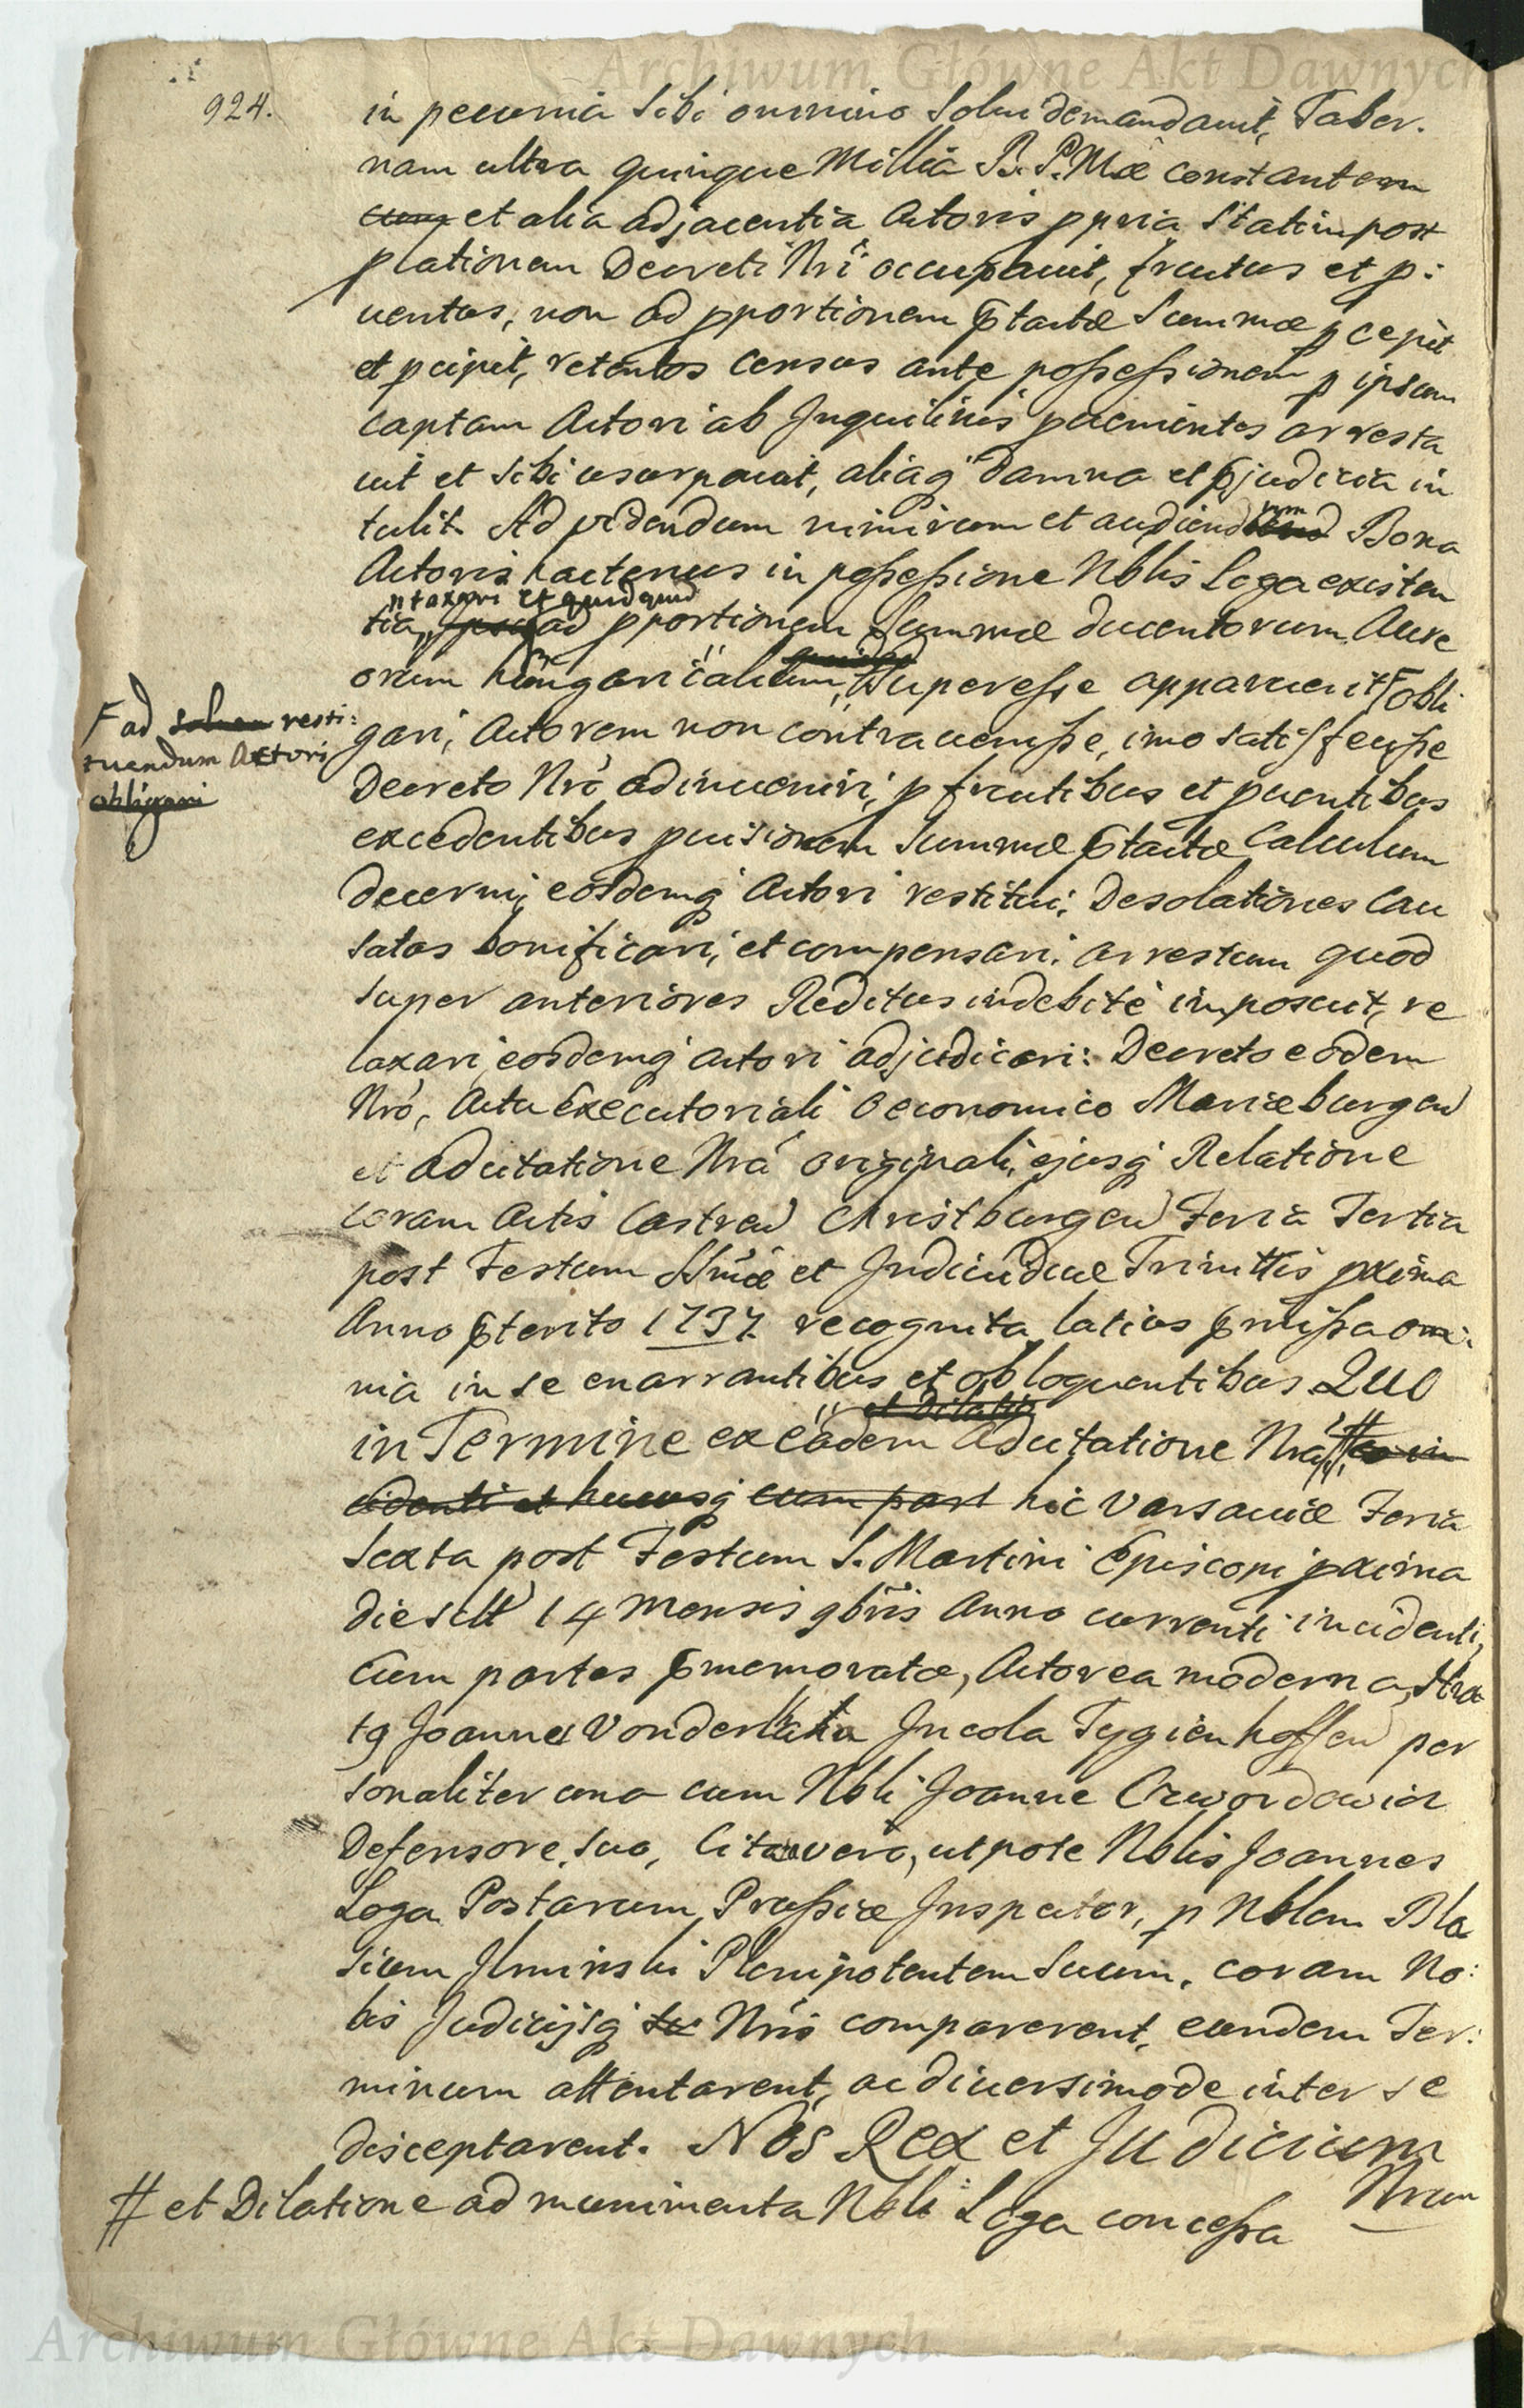 Archiwum Główne Akt Dawnych
924.
in pecunia sibi omnino solui demandauit, Taber-
nam ultra quinque Millia R. P. Mæ constantem
cum et alia adjacentia Actoris ppria statim post
plationem Decreti Nri occupauit, fructus et p:
uentus, non ad pportionem ptactæ Summæ pcepit
et pcipit, retentos census ante possessionem p ipsum
captam Actori ab Inquilinis puenientes arresta
uit et sibi usurpauit, aliaq damna et pjudicia in
tulit. Ad videndum nimirum et audiendum Bona
Actoris hactenus in possessione Nblis Loga existen
ntaxari et quidquid
tia, ad pportionem Summæ ducentorum Aure
orum hungaricalium, superesse apparuerit F obli
F ad soluen resti:
tuendum Actori
obligari
gari, Actorem non contrauenisse, imo satisfecisse
Decreto Nro adinueniri, p fructibus et puentibus
excedentibus puisionem Summæ ptactæ Calculum
decerni, eosdemq Actori restitui. Desolationes cau
satas bonificari, et compensari. Arrestum quod
super anteriores Reditus indebite imposuit, re
laxari, eosdemq Actori adjudicari: Decreto eodem
Nro, Actu Executoriali Oeconomico Mariæburgen
et adcitatione Nra originali, ejusq Relatione
coram Actis Castren Christburgen Feria Tertia
post Festum SSmæ et Individuæ Trinittis pxima
Anno pterito 1737. recognita latius pmissa om:
nia in se enarrantibus et obloquentibus QUO
et Dilatio
in Termine ex eadem Adcitatione Nra # in
cidenti et hucusq cum part hic Varsauiæ Feria
Sexta post Festum S. Martini Episcopi pxima
die scilt 14 mensis 9bris Anno currenti incidenti,
Cum partes pmemoratæ, Actorea moderna, Hon
t9 Joannes Vonder Incola Tygienhoffen per
sonaliter una cum Nbli Joanne Czwordowicz
Defensore suo, Citata vero, utpote Nblis Joannes
Loga Postarum Prussiæ Inspector, p Nblem Bla
sium Ilminski Plenipotentem Suum, coram No:
bis Judicijsq Nris comparerent, eundem Ter:
minum attentarent, ac diuersimode inter se
disceptarent. NOS REX et Judicium
Nrum
# et Dilatione ad munimenta Nbli Loga concessa
Archiwum Główne Akt Dawnych